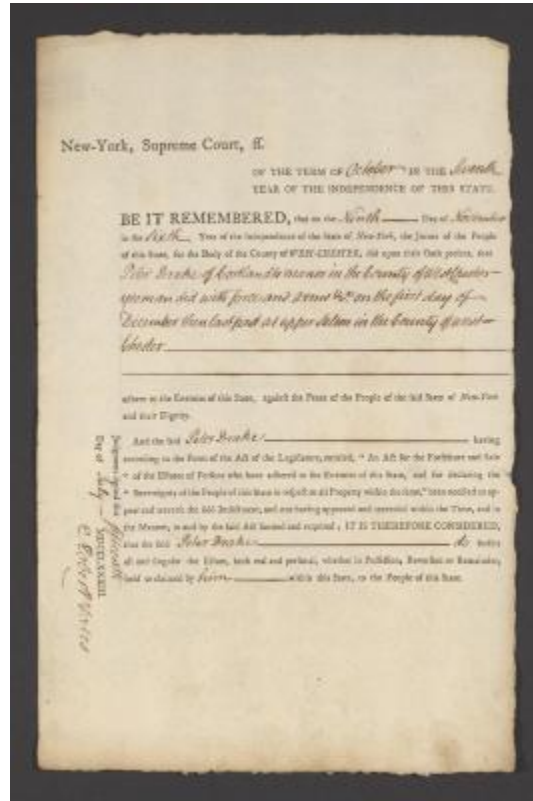 New-York, Supreme Court, ss.
OF THE TERM OF October IN THE Seventh
YEAR OF THE INDEPENDENCE OF THIS STATE.
BE IT REMEMBERED, that on the Ninth Day of November
in the Sixth Year of the Independence of the State of New-York, the Jurors of the People
of this State, for the Body of the County of WEST-CHESTER, did upon their Oath present, that
Peter Drake of Cortlandts manor in the County of West Chester
yeoman did with force and Arms &c. on the first day of
December then last past at upper Salem in the County of West
Chester
adhere to the Enemies of this State, against the Peace of the People of the said State of New-York
and their Dignity.
And the said Peter Drake having
according to the Form of the Act of the Legislature, entitled, “ An Act for the Forfeiture and Sale
“ of the Estates of Persons who have adhered to the Enemies of this State, and for declaring the
“ Sovereignty of the People of this State in respect to all Property within the same,” been notified to ap-
pear and traverse the said Indictment, and not having appeared and traversed within the Time, and in
the Manner, in and by the said Act limited and required ; IT IS THEREFORE CONSIDERED,
that the said Peter Drake do forfeit
all and singular the Estate, both real and personal, whether in Possession, Reversion or Remainder,
held or claimed by him within this State, to the People of this State.
Judgment signed this
Day of July MDCCLXXXIII.